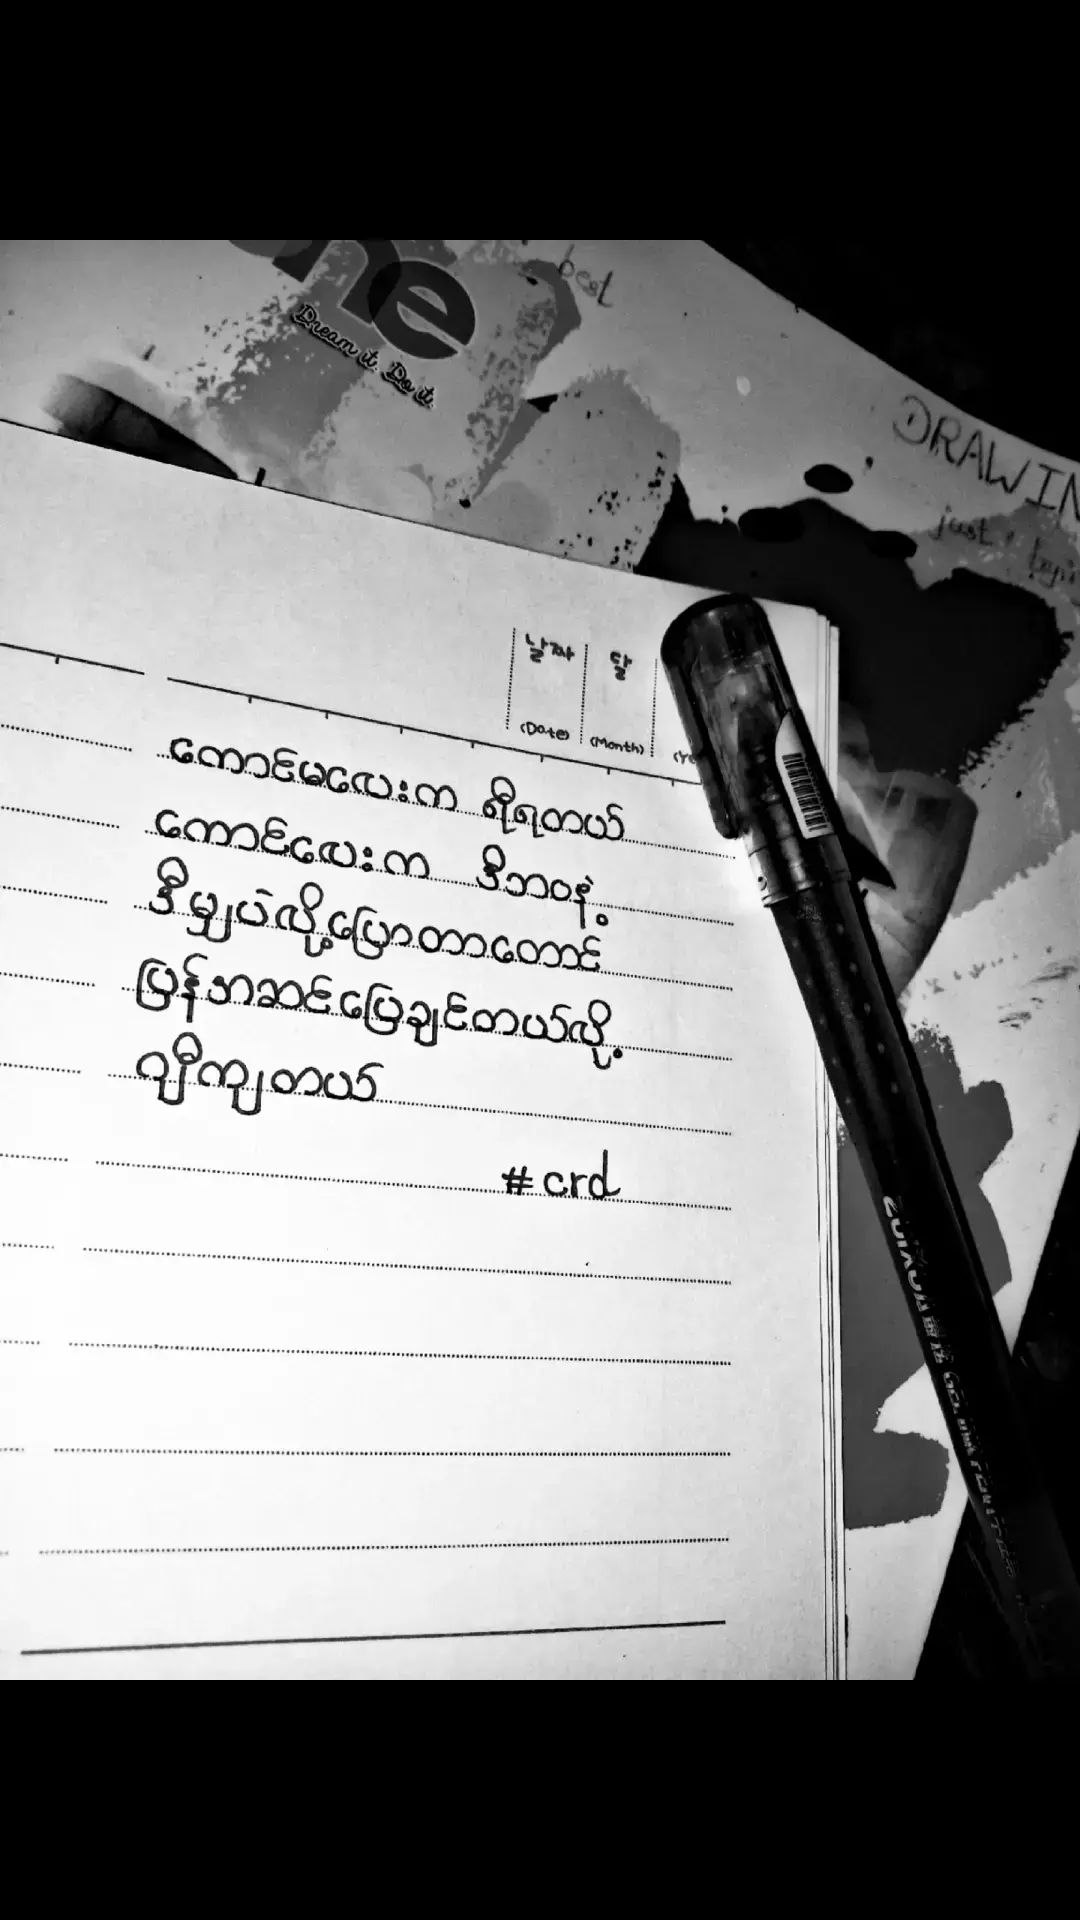 ne
Dream it. Do it.
best
DRAWIN
just
날짜 달
(Date) (Month) (Ye
ကောင်မလေးက ရီရတယ်
ကောင်လေးက ဒီဘဝနဲ့
ဒီမျှပဲလို့ပြောတာတောင်
ပြန်အဆင်ပြေချင်တယ်လို့
ဂျီကျတယ်
#crd